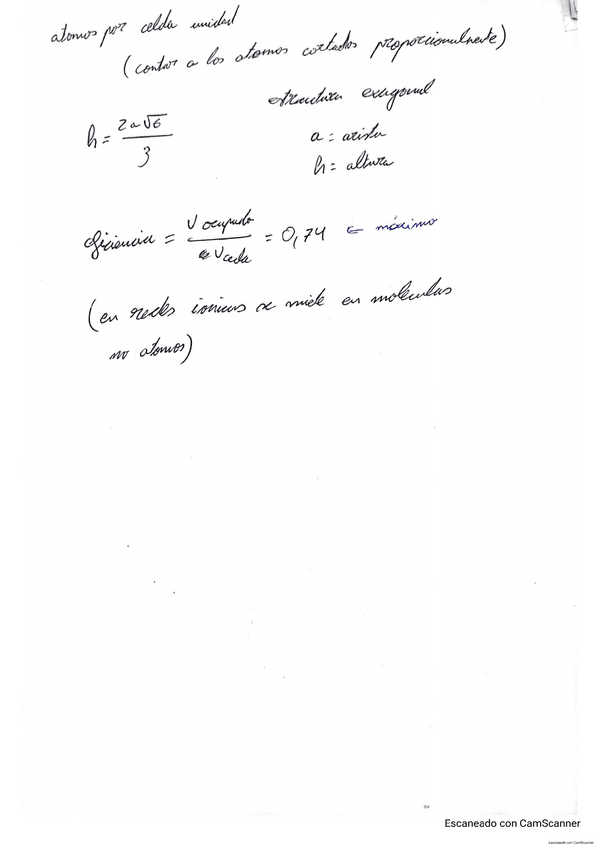 atomos por celda unidad
(contar a los atomos cortados proporcionalmente)
estructura exagonal
h = 2a√6 / 3
a = arista
h = altura
eficiencia = V ocupado / V celda = 0,74 ← máximo
(en redes ionicas se mide en moleculas
no atomos)
Escaneado con CamScanner
Escaneado con CamScanner